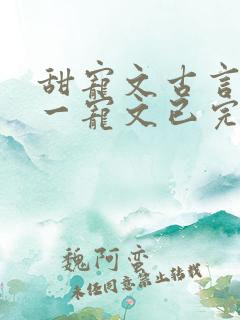 甜宠文古言
一宠文已完
魏阿蛮
未经同意禁止转载